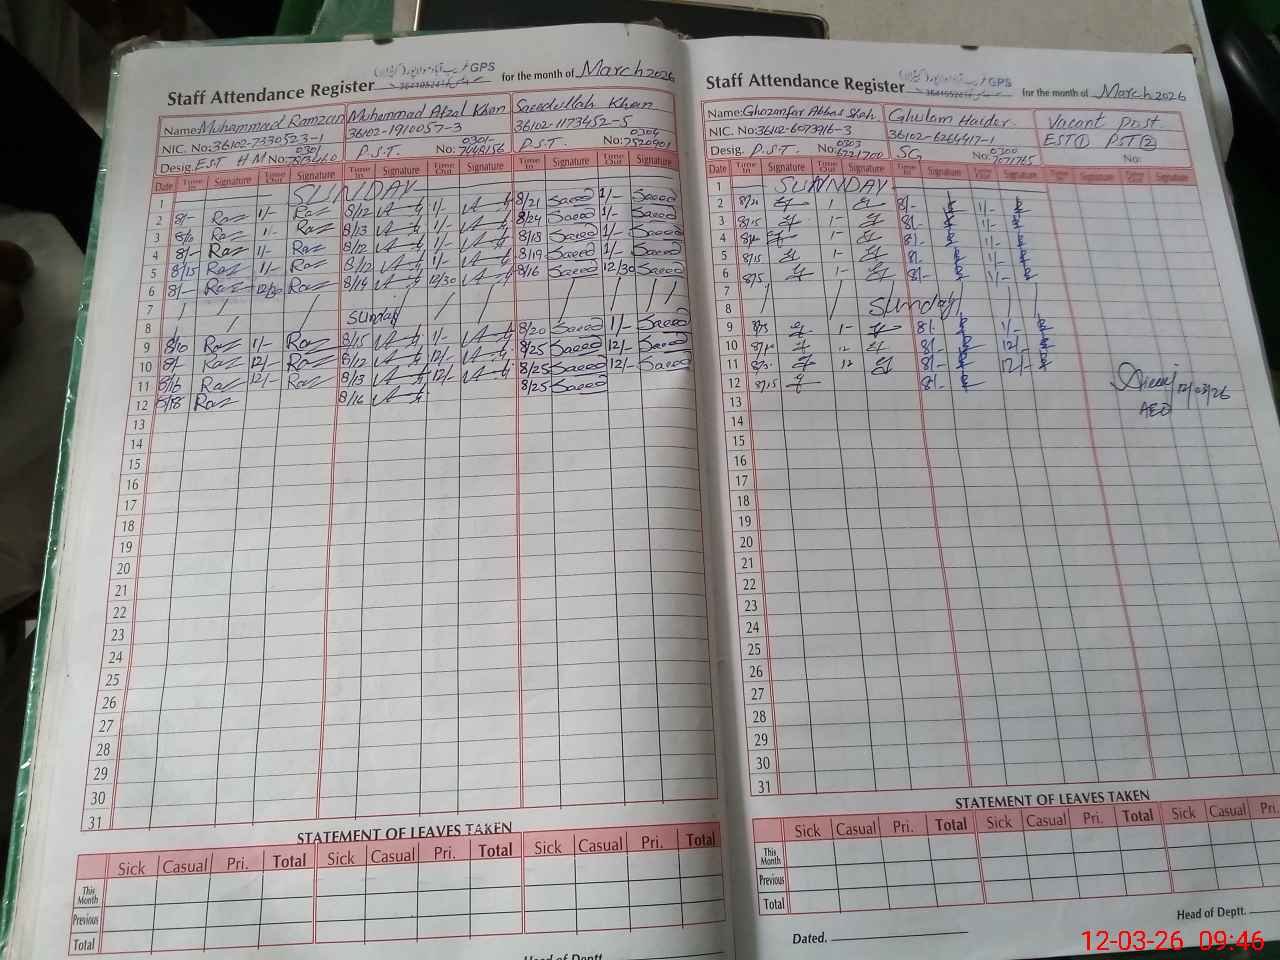 Staff Attendance Register GPS for the month of March 2026
Name: Muhammad Ramzan Muhammad Afzal Khan Saeedullah Khan
NIC. No: 36102-7330523-1 36102-1910057-3 36102-1173452-5
Desig. EST HM No: 0301 P.S.T. No: 0301 P.S.T. No: 0304 7520901
Date Time In Signature Time Out Signature Time In Signature Time Out Signature Time In Signature Time Out Signature
1 SUNDAY
2 8/- Raz 1/- Raz 8/12 1/- 8/21 Saeed 1/- Saeed
3 Raz 1/- Raz 8/13 1/- 8/24 Saeed 1/- Saeed
4 8/- Raz 1/- Raz 8/12 1/- 8/18 Saeed 1/- Saeed
5 8/15 Raz 1/- Raz 8/12 1/- 8/19 Saeed 1/- Saeed
6 8/- Raz 12/30 Raz 8/14 12/30 8/16 Saeed 12/30 Saeed
7
8 Sunday
9 8/10 Raz 1/- Raz 8/15 1/- 8/20 Saeed 1/- Saeed
10 8/- Raz 12/- Raz 8/12 12/- 8/25 Saeed 12/- Saeed
11 8/16 Raz 12/- Raz 8/13 12/- 8/25 Saeed 12/- Saeed
12 8/18 Raz 8/16 8/25 Saeed
13
14
15
16
17
18
19
20
21
22
23
24
25
26
27
28
29
30
31
STATEMENT OF LEAVES TAKEN
Sick Casual Pri. Total Sick Casual Pri. Total Sick Casual Pri. Total
This Month
Previous
Total
Head of Deptt
Staff Attendance Register GPS for the month of March 2026
Name: Ghazanfar Abbas Shah Ghulam Haider Vacant Post
NIC. No: 36102-6073916-3 36102-6264417-1 EST 1 PST 2
Desig. P.S.T. No: 0303 6721700 SG No: 0300 7071765 No:
Date Time In Signature Time Out Signature Time In Signature Time Out Signature Time In Signature Time Out Signature
1 SUNNDAY
2 1- 8/- 1/-
3 8/15 1- 8/- 1/-
4 1- 8/- 1/-
5 8/15 1- 8/- 1/-
6 8/5 1- 8/- 1/-
7
8 Sunday
9 1- 8/- 1/-
10 12 8/- 12/-
11 12 8/- 12/-
12 8/15 8/- 12/03/26
13 AEO
14
15
16
17
18
19
20
21
22
23
24
25
26
27
28
29
30
31
STATEMENT OF LEAVES TAKEN
Sick Casual Pri. Total Sick Casual Pri. Total Sick Casual Pri.
This Month
Previous
Total
Head of Deptt.
Dated.
12-03-26 09:46